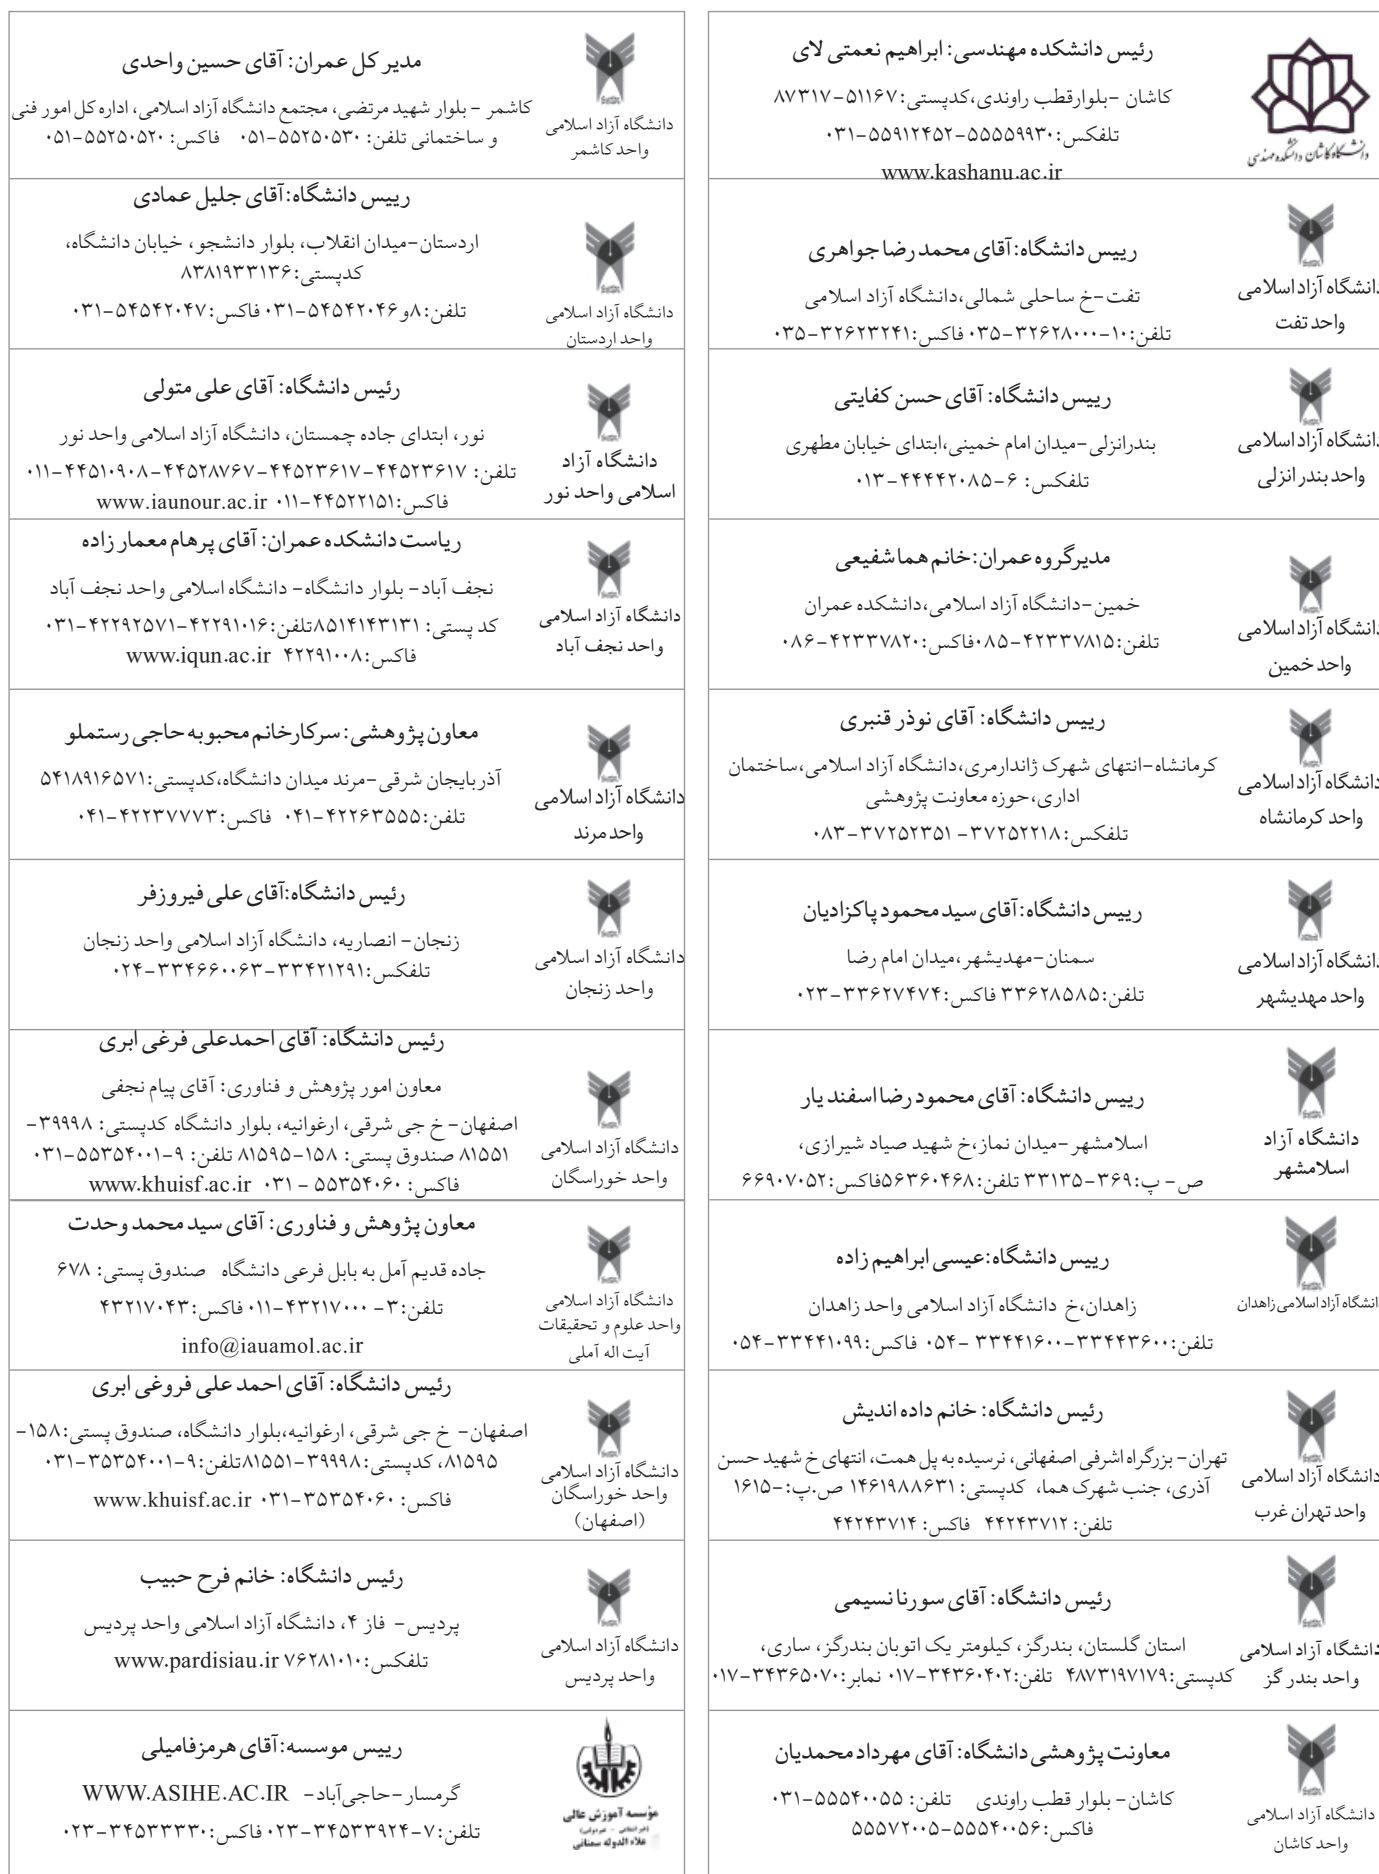 رئیس دانشکده مهندسی: ابراهیم نعمتی لای
کاشان -بلوارقطب راوندی،کدپستی: ۵۱۱۶۷-۸۷۳۱۷
تلفکس: ۵۵۵۵۹۹۳۰-۵۵۹۱۲۴۵۲-۰۳۱
www.kashanu.ac.ir
دانشگاه کاشان دانشکده مهندسی
رییس دانشگاه: آقای محمد رضا جواهری
تفت-خ ساحلی شمالی،دانشگاه آزاد اسلامی
تلفن: ۱۰-۳۲۶۲۸۰۰۰-۰۳۵ فاکس: ۳۲۶۲۳۲۴۱-۰۳۵
دانشگاه آزاد اسلامی
واحد تفت
رییس دانشگاه: آقای حسن کفایتی
بندرانزلی-میدان امام خمینی،ابتدای خیابان مطهری
تلفکس: ۶-۴۴۴۴۲۰۸۵-۰۱۳
دانشگاه آزاد اسلامی
واحد بندر انزلی
مدیرگروه عمران: خانم هما شفیعی
خمین-دانشگاه آزاد اسلامی،دانشکده عمران
تلفن: ۴۲۳۳۷۸۱۵-۰۸۵ فاکس: ۴۲۳۳۷۸۲۰-۰۸۶
دانشگاه آزاد اسلامی
واحد خمین
رییس دانشگاه: آقای نوذر قنبری
کرمانشاه-انتهای شهرک ژاندارمری،دانشگاه آزاد اسلامی،ساختمان
اداری،حوزه معاونت پژوهشی
تلفکس: ۳۷۲۵۲۲۱۸-۳۷۲۵۲۳۵۱-۰۸۳
دانشگاه آزاد اسلامی
واحد کرمانشاه
رییس دانشگاه: آقای سید محمود پاکزادیان
سمنان-مهدیشهر،میدان امام رضا
تلفن: ۳۳۶۲۸۵۸۵ فاکس: ۳۳۶۲۷۴۷۴-۰۲۳
دانشگاه آزاد اسلامی
واحد مهدیشهر
رییس دانشگاه: آقای محمود رضا اسفند یار
اسلامشهر-میدان نماز،خ شهید صیاد شیرازی،
ص- پ: ۳۶۹-۳۳۱۳۵ تلفن: ۵۶۳۶۰۴۶۸ فاکس: ۶۶۹۰۷۰۵۲
دانشگاه آزاد
اسلامشهر
رییس دانشگاه: عیسی ابراهیم زاده
زاهدان،خ دانشگاه آزاد اسلامی واحد زاهدان
تلفن: ۳۳۴۴۳۶۰۰-۳۳۴۴۱۶۰۰ -۰۵۴ فاکس: ۳۳۴۴۱۰۹۹-۰۵۴
دانشگاه آزاد اسلامی زاهدان
رئیس دانشگاه: خانم داده اندیش
تهران- بزرگراه اشرفی اصفهانی، نرسیده به پل همت، انتهای خ شهید حسن
آذری، جنب شهرک هما، کدپستی: ۱۴۶۱۹۸۸۶۳۱ ص.پ: -۱۶۱۵
تلفن: ۴۴۲۴۳۷۱۲ فاکس: ۴۴۲۴۳۷۱۴
دانشگاه آزاد اسلامی
واحد تهران غرب
رئیس دانشگاه: آقای سورنا نسیمی
استان گلستان، بندرگز، کیلومتر یک اتوبان بندرگز، ساری،
کدپستی: ۴۸۷۳۱۹۷۱۷۹ تلفن: ۳۴۳۶۰۴۰۲-۰۱۷ نمابر: ۳۴۳۶۵۰۷۰-۰۱۷
دانشگاه آزاد اسلامی
واحد بندر گز
معاونت پژوهشی دانشگاه: آقای مهرداد محمدیان
کاشان- بلوار قطب راوندی تلفن: ۵۵۵۴۰۰۵۵-۰۳۱
فاکس: ۵۵۵۴۰۰۵۶-۵۵۵۷۲۰۰۵
دانشگاه آزاد اسلامی
واحد کاشان
مدیر کل عمران: آقای حسین واحدی
کاشمر - بلوار شهید مرتضی، مجتمع دانشگاه آزاد اسلامی، اداره کل امور فنی
و ساختمانی تلفن: ۵۵۲۵۰۵۳۰-۰۵۱ فاکس: ۵۵۲۵۰۵۲۰-۰۵۱
دانشگاه آزاد اسلامی
واحد کاشمر
رییس دانشگاه: آقای جلیل عمادی
اردستان-میدان انقلاب، بلوار دانشجو، خیابان دانشگاه،
کدپستی: ۸۳۸۱۹۳۳۱۳۶
تلفن: ۸و۵۴۵۴۲۰۴۶-۰۳۱ فاکس: ۵۴۵۴۲۰۴۷-۰۳۱
دانشگاه آزاد اسلامی
واحد اردستان
رئیس دانشگاه: آقای علی متولی
نور، ابتدای جاده چمستان، دانشگاه آزاد اسلامی واحد نور
تلفن: ۴۴۵۲۳۶۱۷-۴۴۵۲۳۶۱۷-۴۴۵۲۸۷۶۷-۴۴۵۱۰۹۰۸-۰۱۱
فاکس: ۴۴۵۲۲۱۵۱-۰۱۱ www.iaunour.ac.ir
دانشگاه آزاد
اسلامی واحد نور
ریاست دانشکده عمران: آقای پرهام معمار زاده
نجف آباد- بلوار دانشگاه- دانشگاه اسلامی واحد نجف آباد
کد پستی: ۸۵۱۴۱۴۳۱۳۱ تلفن: ۴۲۲۹۱۰۱۶-۴۲۲۹۲۵۷۱-۰۳۱
فاکس: ۴۲۲۹۱۰۰۸ www.iqun.ac.ir
دانشگاه آزاد اسلامی
واحد نجف آباد
معاون پژوهشی: سرکارخانم محبوبه حاجی رستملو
آذربایجان شرقی-مرند میدان دانشگاه،کدپستی: ۵۴۱۸۹۱۶۵۷۱
تلفن: ۴۲۲۶۳۵۵۵-۰۴۱ فاکس: ۴۲۲۳۷۷۷۳-۰۴۱
دانشگاه آزاد اسلامی
واحد مرند
رئیس دانشگاه: آقای علی فیروزفر
زنجان- انصاریه، دانشگاه آزاد اسلامی واحد زنجان
تلفکس: ۳۳۴۲۱۲۹۱-۳۳۴۶۶۰۰۶۳-۰۲۴
دانشگاه آزاد اسلامی
واحد زنجان
رئیس دانشگاه: آقای احمدعلی فرغی ابری
معاون امور پژوهش و فناوری: آقای پیام نجفی
اصفهان- خ جی شرقی، ارغوانیه، بلوار دانشگاه کدپستی: ۳۹۹۹۸-
۸۱۵۵۱ صندوق پستی: ۱۵۸-۸۱۵۹۵ تلفن: ۹-۵۵۳۵۴۰۰۱-۰۳۱
فاکس: ۵۵۳۵۴۰۶۰ - ۰۳۱ www.khuisf.ac.ir
دانشگاه آزاد اسلامی
واحد خوراسگان
معاون پژوهش و فناوری: آقای سید محمد وحدت
جاده قدیم آمل به بابل فرعی دانشگاه صندوق پستی: ۶۷۸
تلفن: ۳- ۴۳۲۱۷۰۰۰-۰۱۱ فاکس: ۴۳۲۱۷۰۴۳
info@iauamol.ac.ir
دانشگاه آزاد اسلامی
واحد علوم و تحقیقات
آیت اله آملی
رئیس دانشگاه: آقای احمد علی فروغی ابری
اصفهان- خ جی شرقی، ارغوانیه،بلوار دانشگاه، صندوق پستی: ۱۵۸-
۸۱۵۹۵، کدپستی: ۳۹۹۹۸-۸۱۵۵۱ تلفن: ۹-۳۵۳۵۴۰۰۱-۰۳۱
فاکس: ۳۵۳۵۴۰۶۰-۰۳۱ www.khuisf.ac.ir
دانشگاه آزاد اسلامی
واحد خوراسگان
(اصفهان)
رئیس دانشگاه: خانم فرح حبیب
پردیس- فاز ۴، دانشگاه آزاد اسلامی واحد پردیس
تلفکس: ۷۶۲۸۱۰۱۰ www.pardisiau.ir
دانشگاه آزاد اسلامی
واحد پردیس
رییس موسسه: آقای هرمزفامیلی
گرمسار-حاجی‌آباد- WWW.ASIHE.AC.IR
تلفن: ۷-۳۴۵۳۳۹۲۴-۰۲۳ فاکس: ۳۴۵۳۳۳۳۰-۰۲۳
مؤسسه آموزش عالی
(غیرانتفاعی - غیردولتی)
علاء الدوله سمنانی